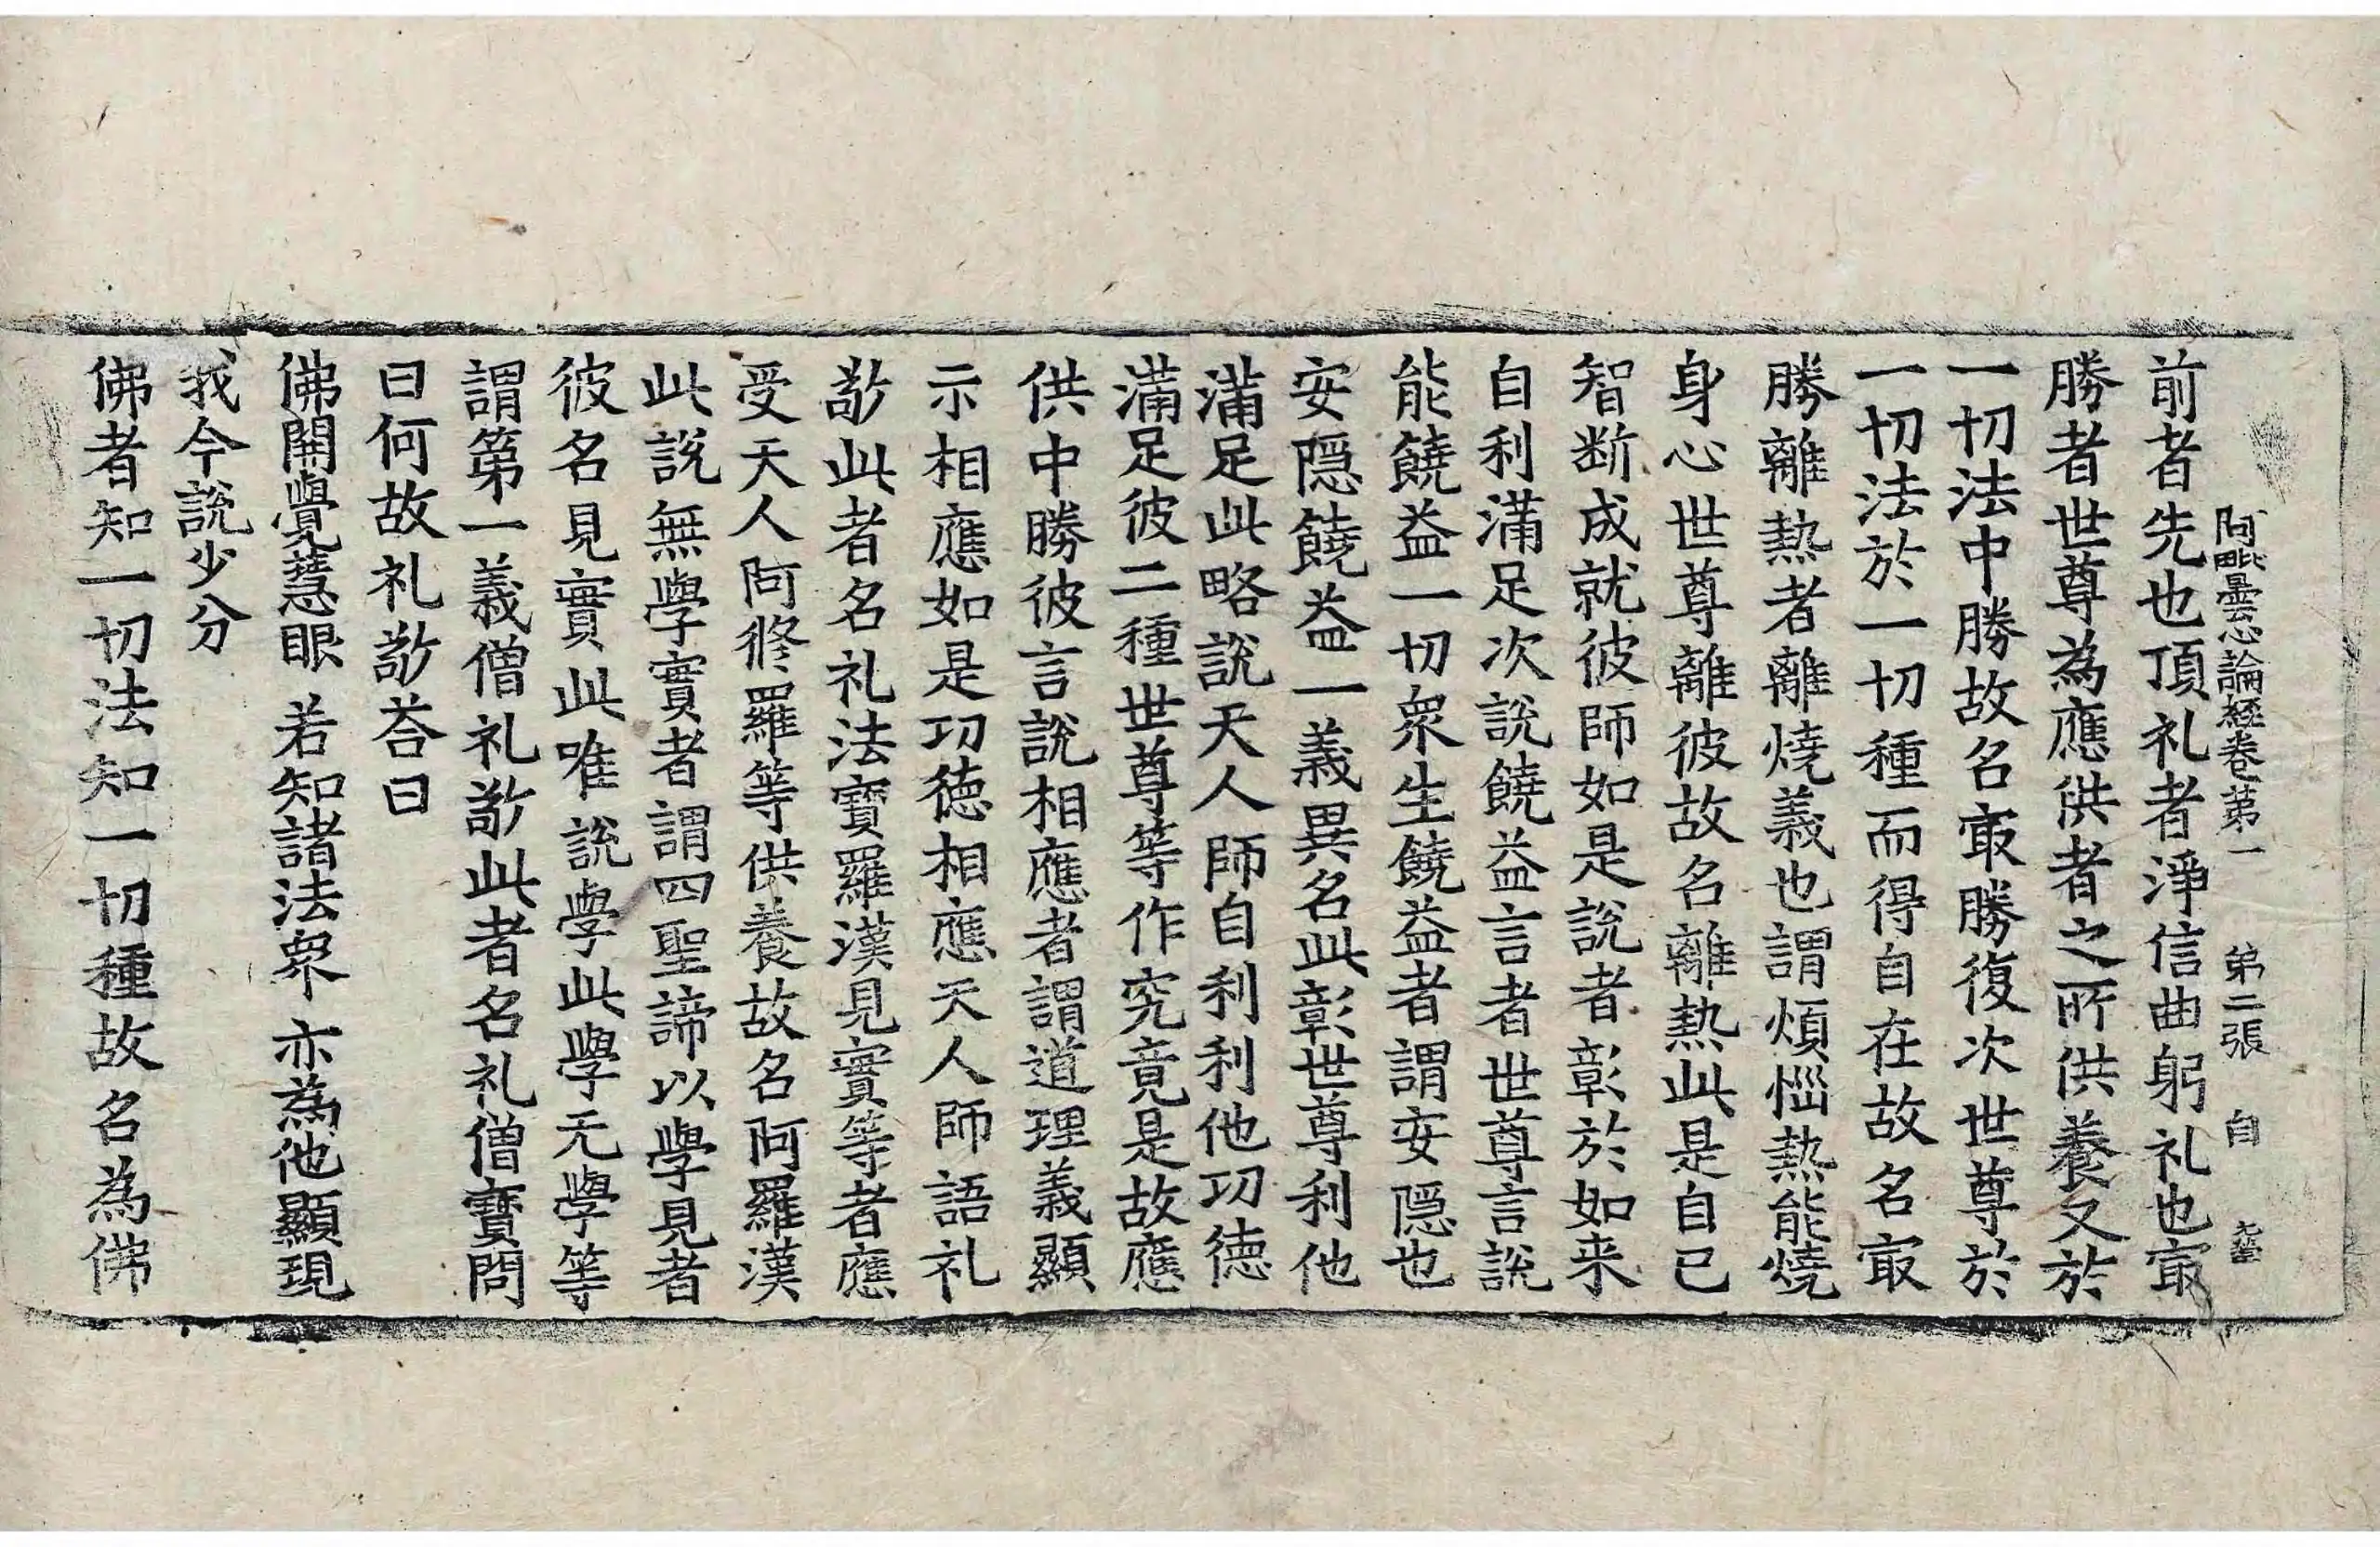 阿毗曇心論經卷第一 第二張 自
前者先也頂礼者淨信曲躬礼也㝡
勝者世尊為應供者之所供養又於
一切法中勝故名㝡勝復次世尊於
一切法於一切種而得自在故名㝡
勝離熱者離燒義也謂煩惱熱能燒
身心世尊離彼故名離熱此是自己
智断成就彼師如是說者彰於如来
自利滿足次說饒益言者世尊言說
能饒益一切衆生饒益者謂安隱也
安隱饒益一義異名此彰世尊利他
滿足此略說天人師自利利他功徳
滿足彼二種世尊等作究竟是故應
供中勝彼言說相應者謂道理義顯
示相應如是功徳相應天人師語礼
敬此者名礼法寶羅漢見實等者應
受天人阿修羅等供養故名阿羅漢
此說無學實者謂四聖諦以學見者
彼名見實此唯說學此學无學等
謂第一義僧礼敬此者名礼僧寶問
曰何故礼敬荅曰
佛開覺慧眼 若知諸法衆 亦為他顯現
我今說少分
佛者知一切法知一切種故名為佛